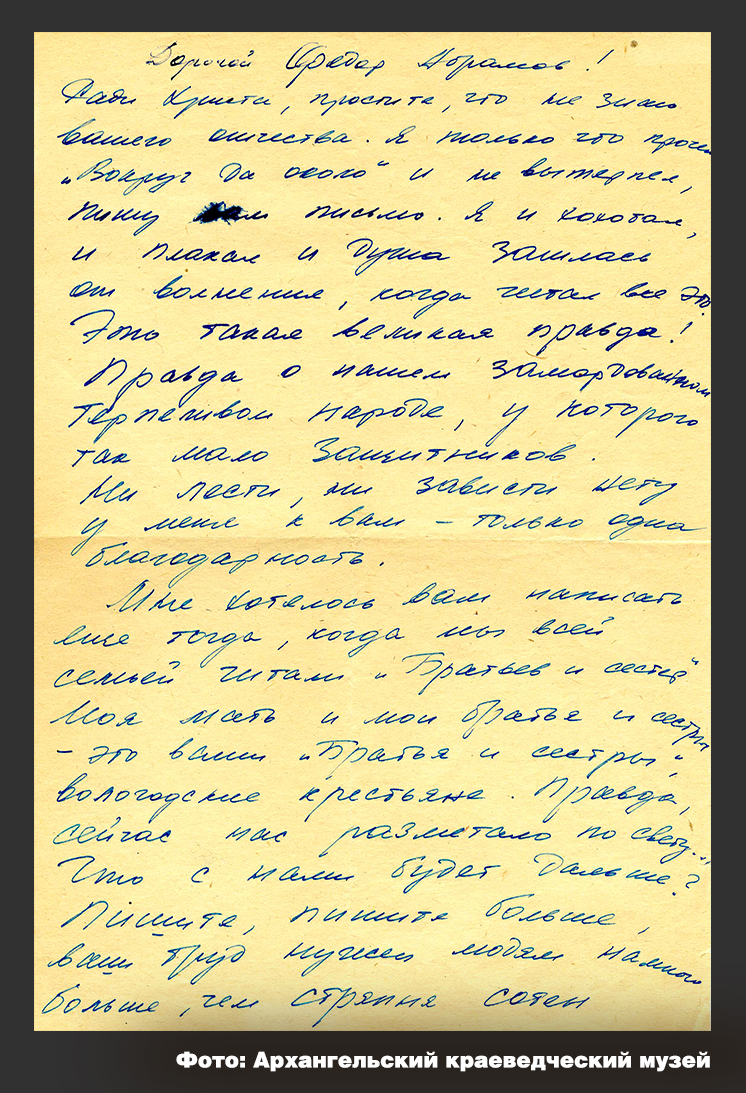 Дорогой Федор Абрамов!
Ради Христа, простите, что не знаю
вашего отчества. Я только что прочел
„Вокруг да около“ и не вытерпел,
пишу вам письмо. Я и хохотал,
и плакал и душа зашлась
от волнения, когда читал все это.
Это такая великая правда!
Правда о нашем замордованном
терпеливом народе, у которого
так мало защитников.
Ни лести, ни зависти нету
у меня к вам – только одна
благодарность.
Мне хотелось вам написать
еще тогда, когда мы всей
семьей читали „Братьев и сестер“
Моя мать и мои братья и сестры
– это ваши „Братья и сестры“,
вологодские крестьяне. Правда,
сейчас нас разметало по свету...
Что с нами будет дальше?
Пишите, пишите больше,
ваш труд нужен людям намного
больше, чем стряпня сотен
Фото: Архангельский краеведческий музей